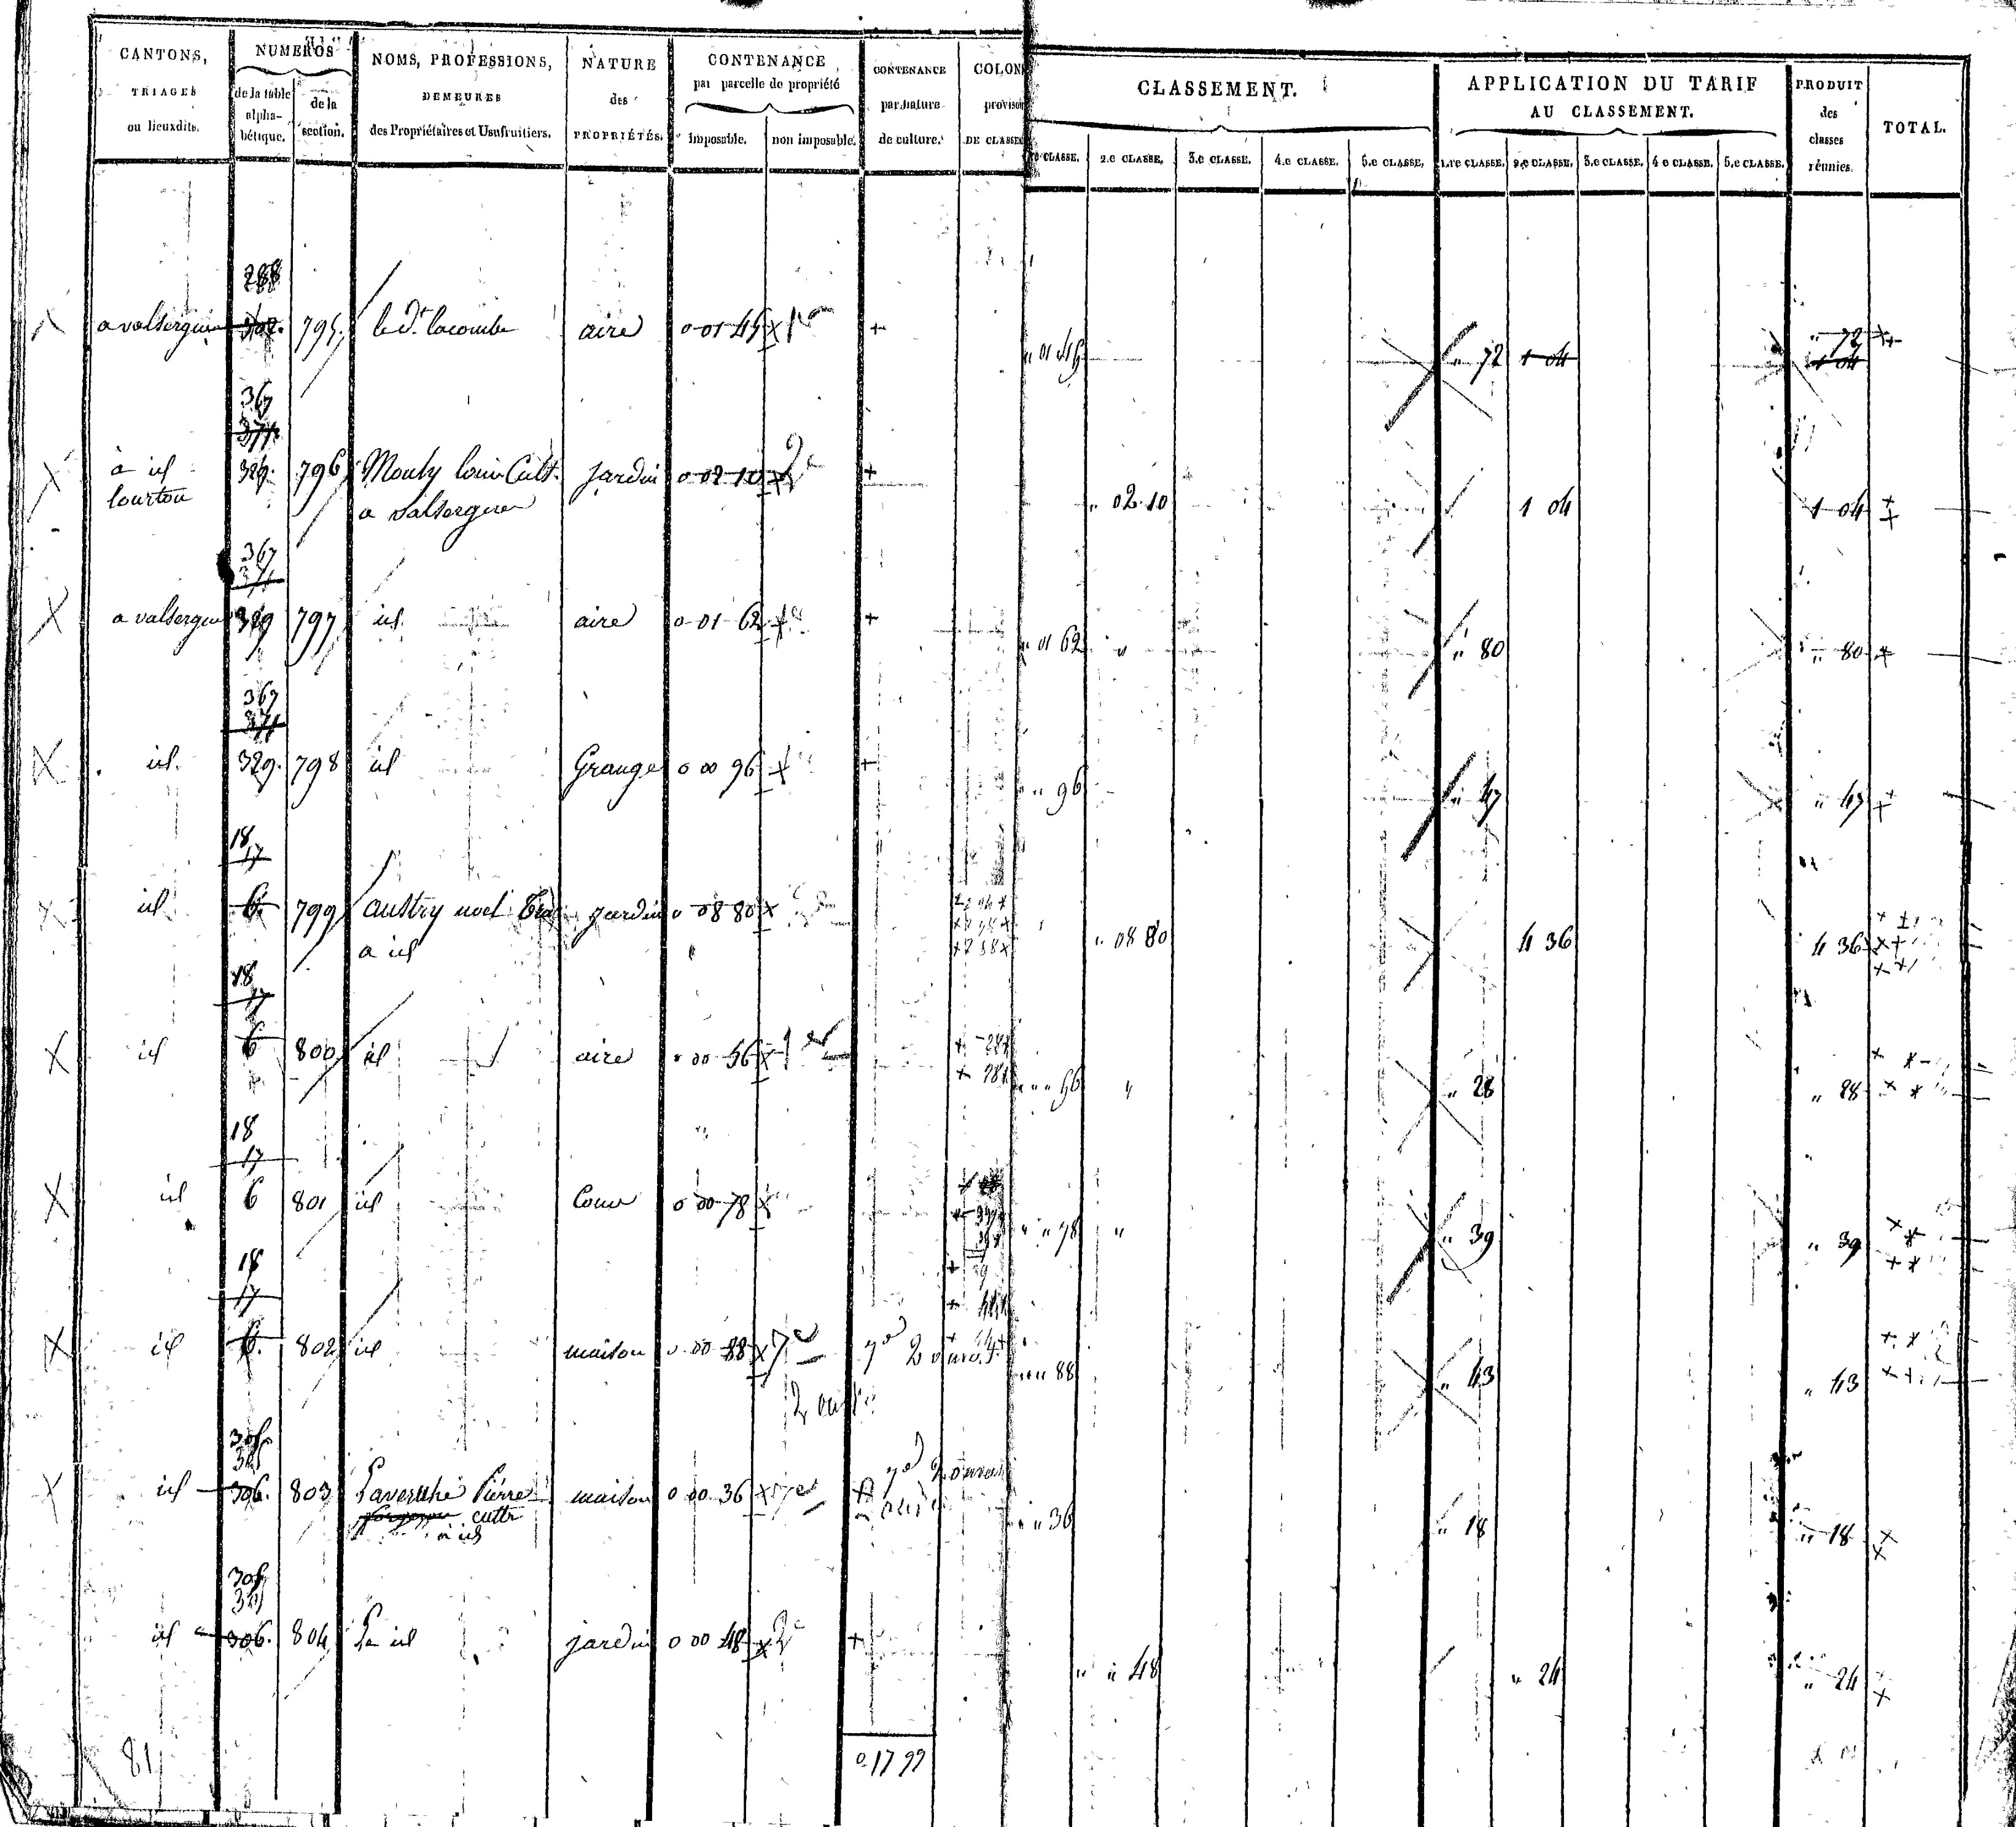 CANTONS, TRIAGES ou lieuxdits. NUMEROS de la table alpha-bétique. de la section. NOMS, PROFESSIONS, DEMEURES des Propriétaires et Usufruitiers. NATURE des PROPRIÉTÉS. CONTENANCE par parcelle de propriété imposable. non imposable. CONTENANCE par nature de culture. COLON provisoi DE CLASSE
CLASSEMENT. CLASSE. 2.e CLASSE. 3.e CLASSE. 4.e CLASSE. 5.e CLASSE. APPLICATION DU TARIF AU CLASSEMENT. 1.re CLASSE. 2.e CLASSE. 3.e CLASSE. 4.e CLASSE. 5.e CLASSE. PRODUIT des classes réunies. TOTAL.
288
a valsergue 302. 795. le dt. lacombe aire 0 01 45 " 01 45 " 72 1 04 " 72
1 04
367
371
à id 329. 796 Mouly louis Cult. jardin 0 02 10 2e " 02 10 1 04 1 04
lourtou a valsergue
367
371
a valsergue 329 797 id. aire 0 01 62 " 01 62 " " 80 " 80
367
371
id. 329. 798 id Grange 0 00 96 " " 96 " 47 " 47
18
17
id 6. 799 austry noel jardin 0 08 80 " 08 80 4 36 4 36
a id
18
17
id 6 800 id aire 0 00 56 " " 56 " " 28 " 28
18
17
id 6 801 id Cour 0 00 78 " " 78 " " 39 " 39
18
17
id 6. 802 id maison 0 00 88 7e " " 88 " 43 " 43
306. 803 Lavernhe Pierre maison 0 00 36 7e " " 36 " 18 " 18
id cultr
à id
id 306. 804 Le id jardin 0 00 48 2e " " 48 " 24 " 24
81
0 17 99